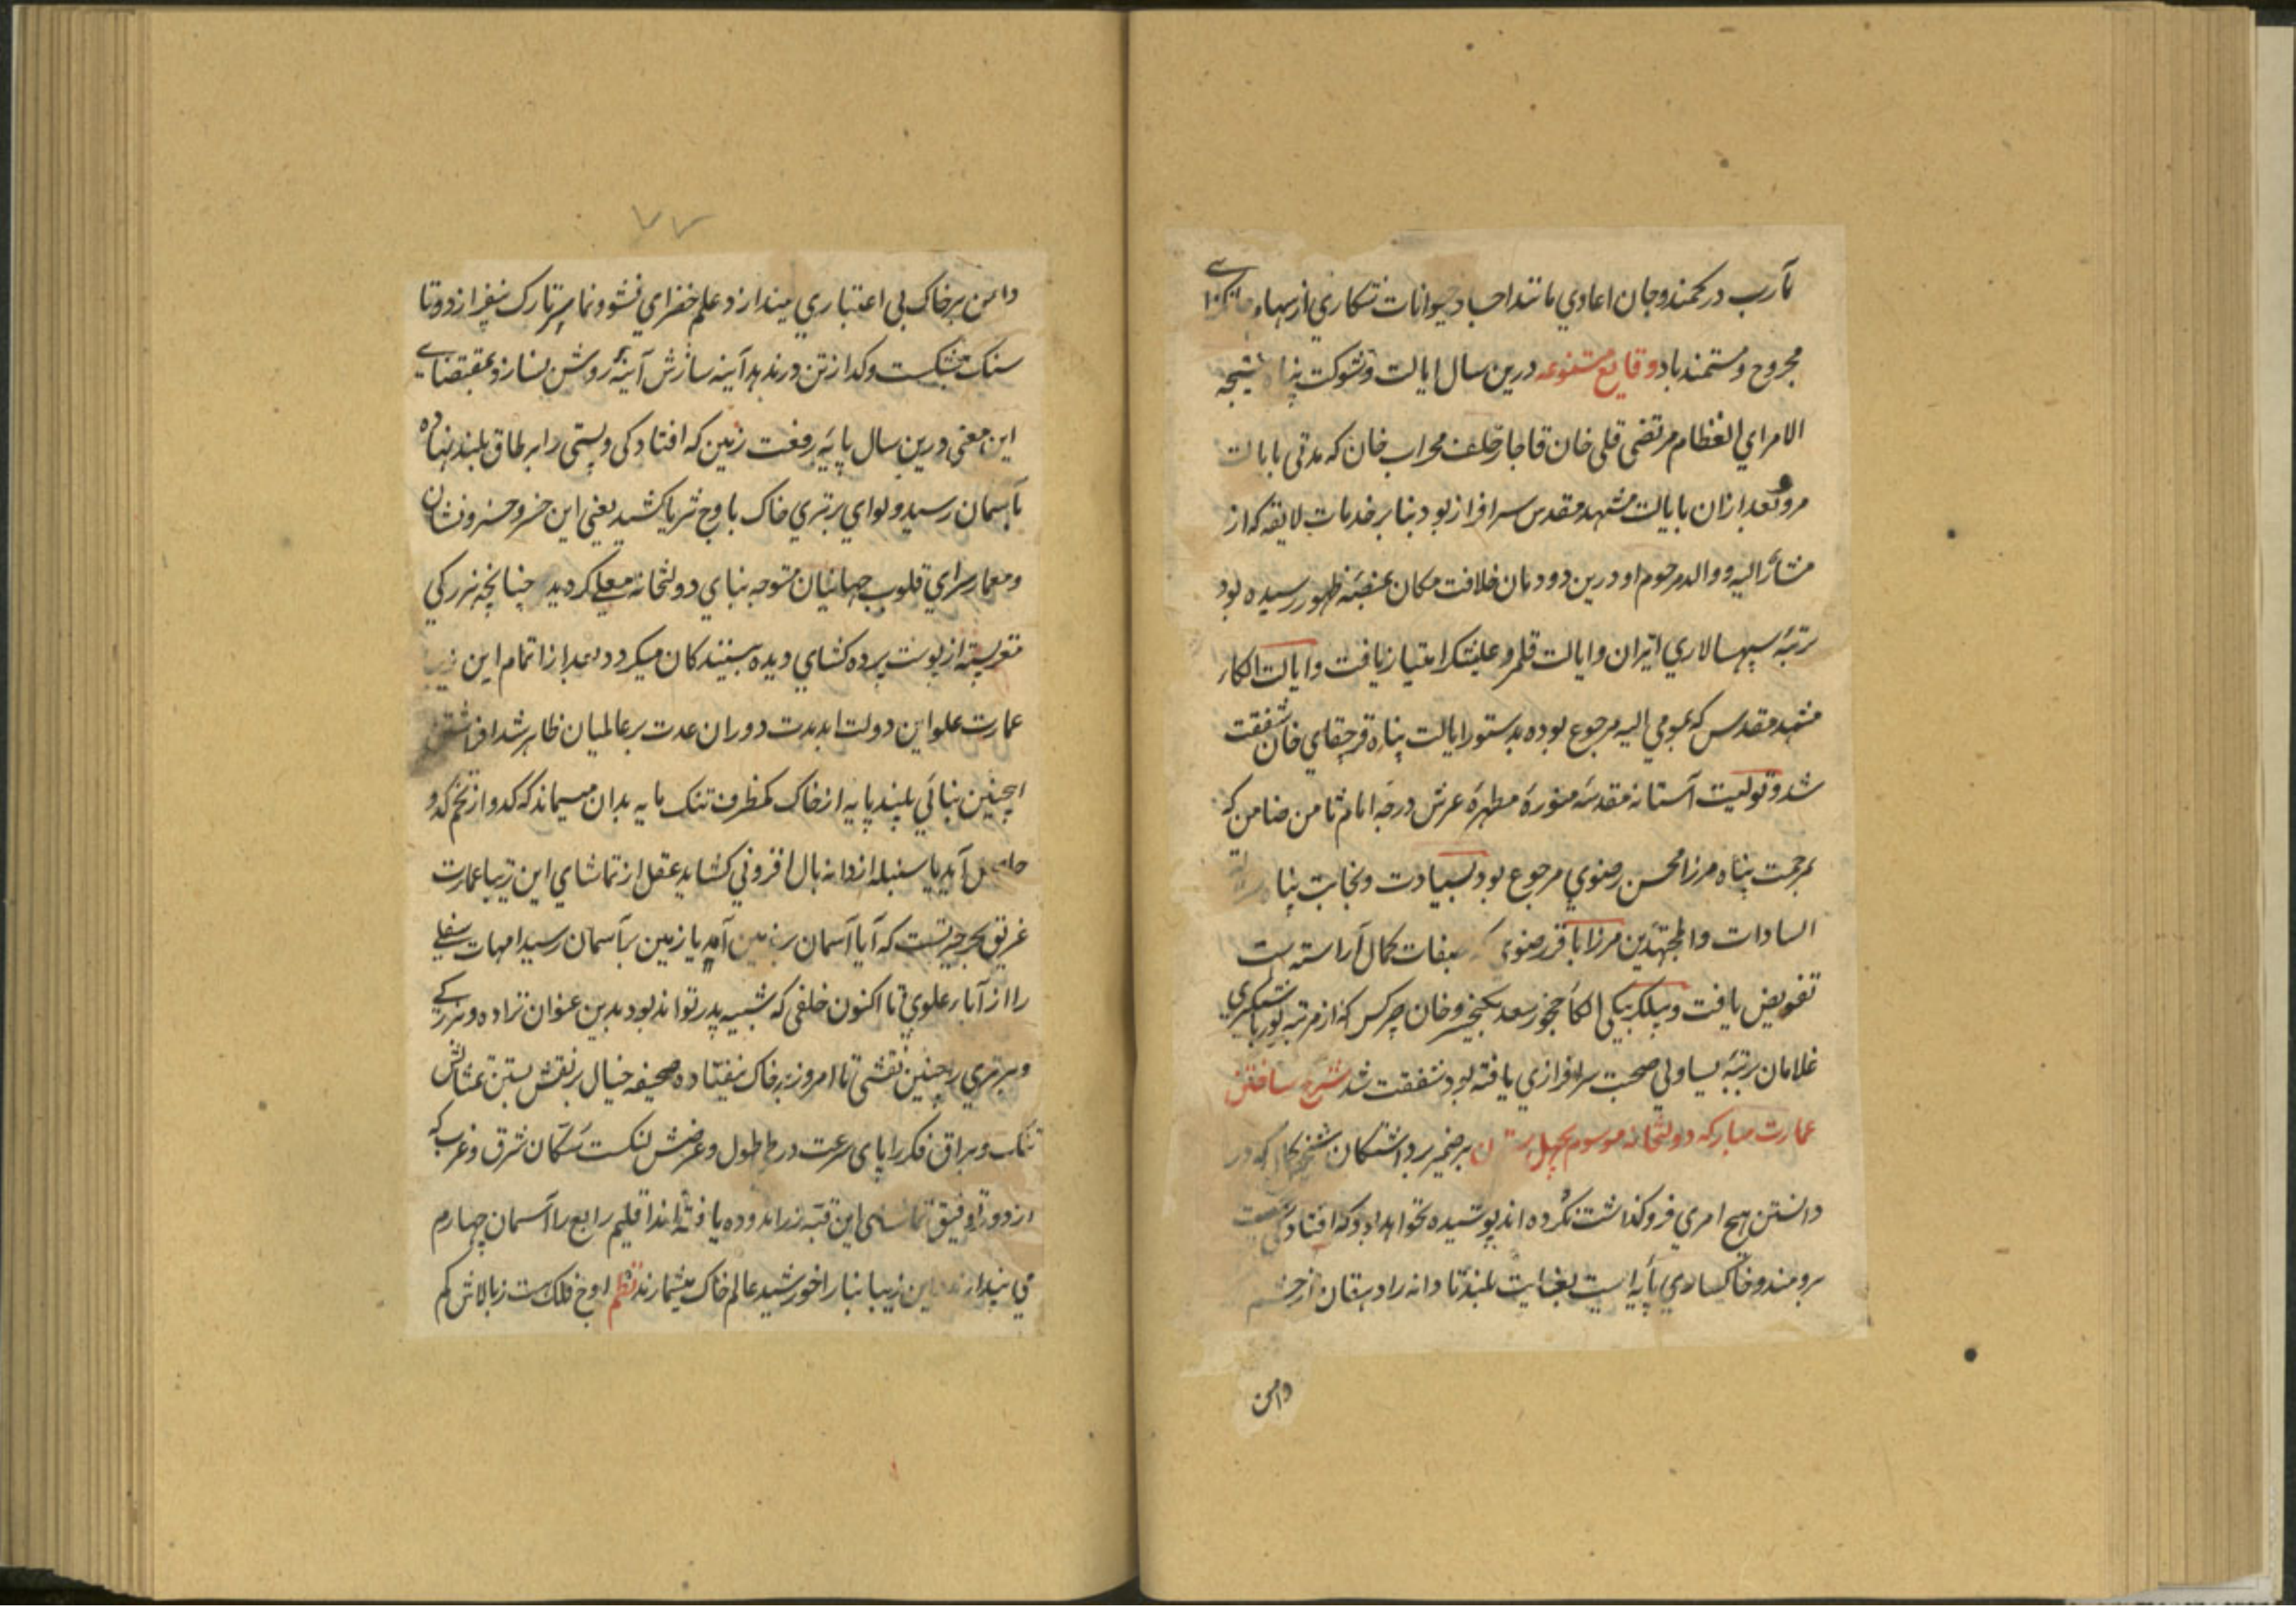 مآرب در کمند و جان اعادی مانند احساد حیوانات شکاری از سهام
مجروح و مستمند باد وقایع متنوعه درین سال ایالت و شوکت پناه نتیجه
الامرای العظام مرتضی قلی خان قاجار خلف محراب خان که مدتی بایالت
مرو و بعد ازان بایالت مشهد مقدس سرافراز بود بنا بر خدمات لایقه که از
مشار الیه و والد مرحوم او درین دودمان خلافت مکان بمنصه ظهور رسیده بود
رتبه سپهسالاری ایران و ایالت قلمرو علیشکر امتیاز یافت و ایالت الکار
مشهد مقدس که بمومی الیه مرجوع بوده بدستور ایالت پناه قرچقای خان شفقت
شد و تولیت آستانه مقدسه منوره مطهره عرش درجه امام ثامن ضامن که
بمرحمت پناه مرزا محسن رضوی مرجوع بود بسیادت و نجابت پناه
السادات والمجتهدین مرزا باقر رضوی که بصفات کمال آراسته است
تفویض یافت و بیلکربیکی الکاء چخور سعد بکیخسرو خان چرکس که از مرتبه یوزباشیکری
غلامان برتبه یساولی صحبت سرافرازی یافته بود شفقت شد شرح ساختن
عمارت مبارکه دولتخانه موسوم بچهل ستون بر ضمیر برداشتکان که در
دانستن هیچ امری فروکذاشت نکرده اند پوشیده نخواهد بود که افتادکی
برومند و خاکساری پایه ایست بغایت بلند تا دانه را دهقان از چشم
دامن
۷۷
دامن بر خاک بی اعتباری میندازد علم خضرای نشو و نما بر تارک نیفرازد و تا
سنک شکست و کداز تن در ندهد آینه سازش آینه روشن نسازد بمقتضای
این معنی درین سال پایه رفعت زمین که افتادکی و پستی را بر طاق بلند نهاده
بآسمان رسید و لوای برتری خاک باوج ثریا کشید یعنی این خسرو خسرو نشان
و معمار سرای قلوب جهانیان متوجه بنای دولتخانه معلی کردید چنانچه بزرکی
مغز پسته از پوست پرده کشای دیده بینندکان میکردد بعد از اتمام این
عمارت علو این دولت ابد مدت دوران عدت بر عالمیان ظاهر شد افراشتن
اینچنین بنائی بلند پایه از خاک کمظرف تنک مایه بدان میماند که کدو از تخم کدو
حاصل آید یا سنبله از دانه بال افزونی کشاید عقل از تماشای این زیبا عمارت
غریق بحر حیرتست که آیا آسمان بر زمین آمد یا زمین بر آسمان رسید امهات سفلی
را از آباء علوی تا اکنون خلفی که شبیه پدر تواند بود بدین عنوان نزاده و بزرکی
و برتری را چنین نقشی تا امروز بر خاک نیفتاده صحیفه خیال بر نقش بستن تمثالش
تنک و براق فکر را پای سرعت در طی طول و عرضش لنکست سکان شرق و غرب که
از دور توفیق تماشای این قبه زراندوده یافته اند اقلیم رابع را آسمان چهارم
می پندارند این زیبا بنا را خورشید عالم خاک میشمارند نظم اوج فلک ست ز بالاش کم